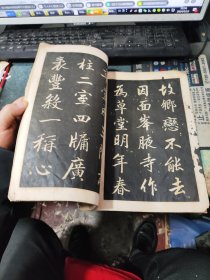 故鄉戀不能去
因面峯腋寺作
為草堂明年春
柱二室四牖廣
袤豐殺一稱心